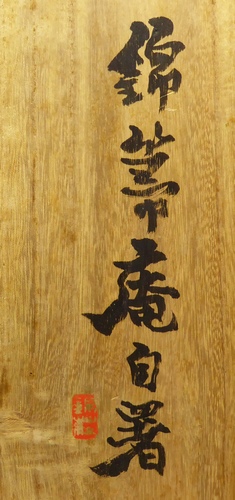 錦帯庵自署